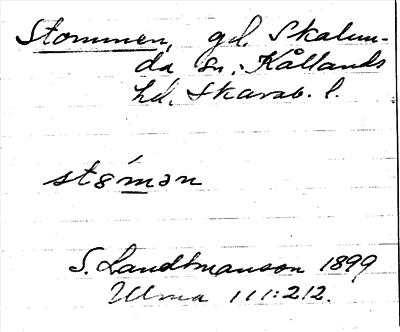 Stommen, gd. Skalun-
da sn. Kållands
hd. Skarab. l.
stó̀mən
S. Landtmanson 1899
Ulma 111:212.